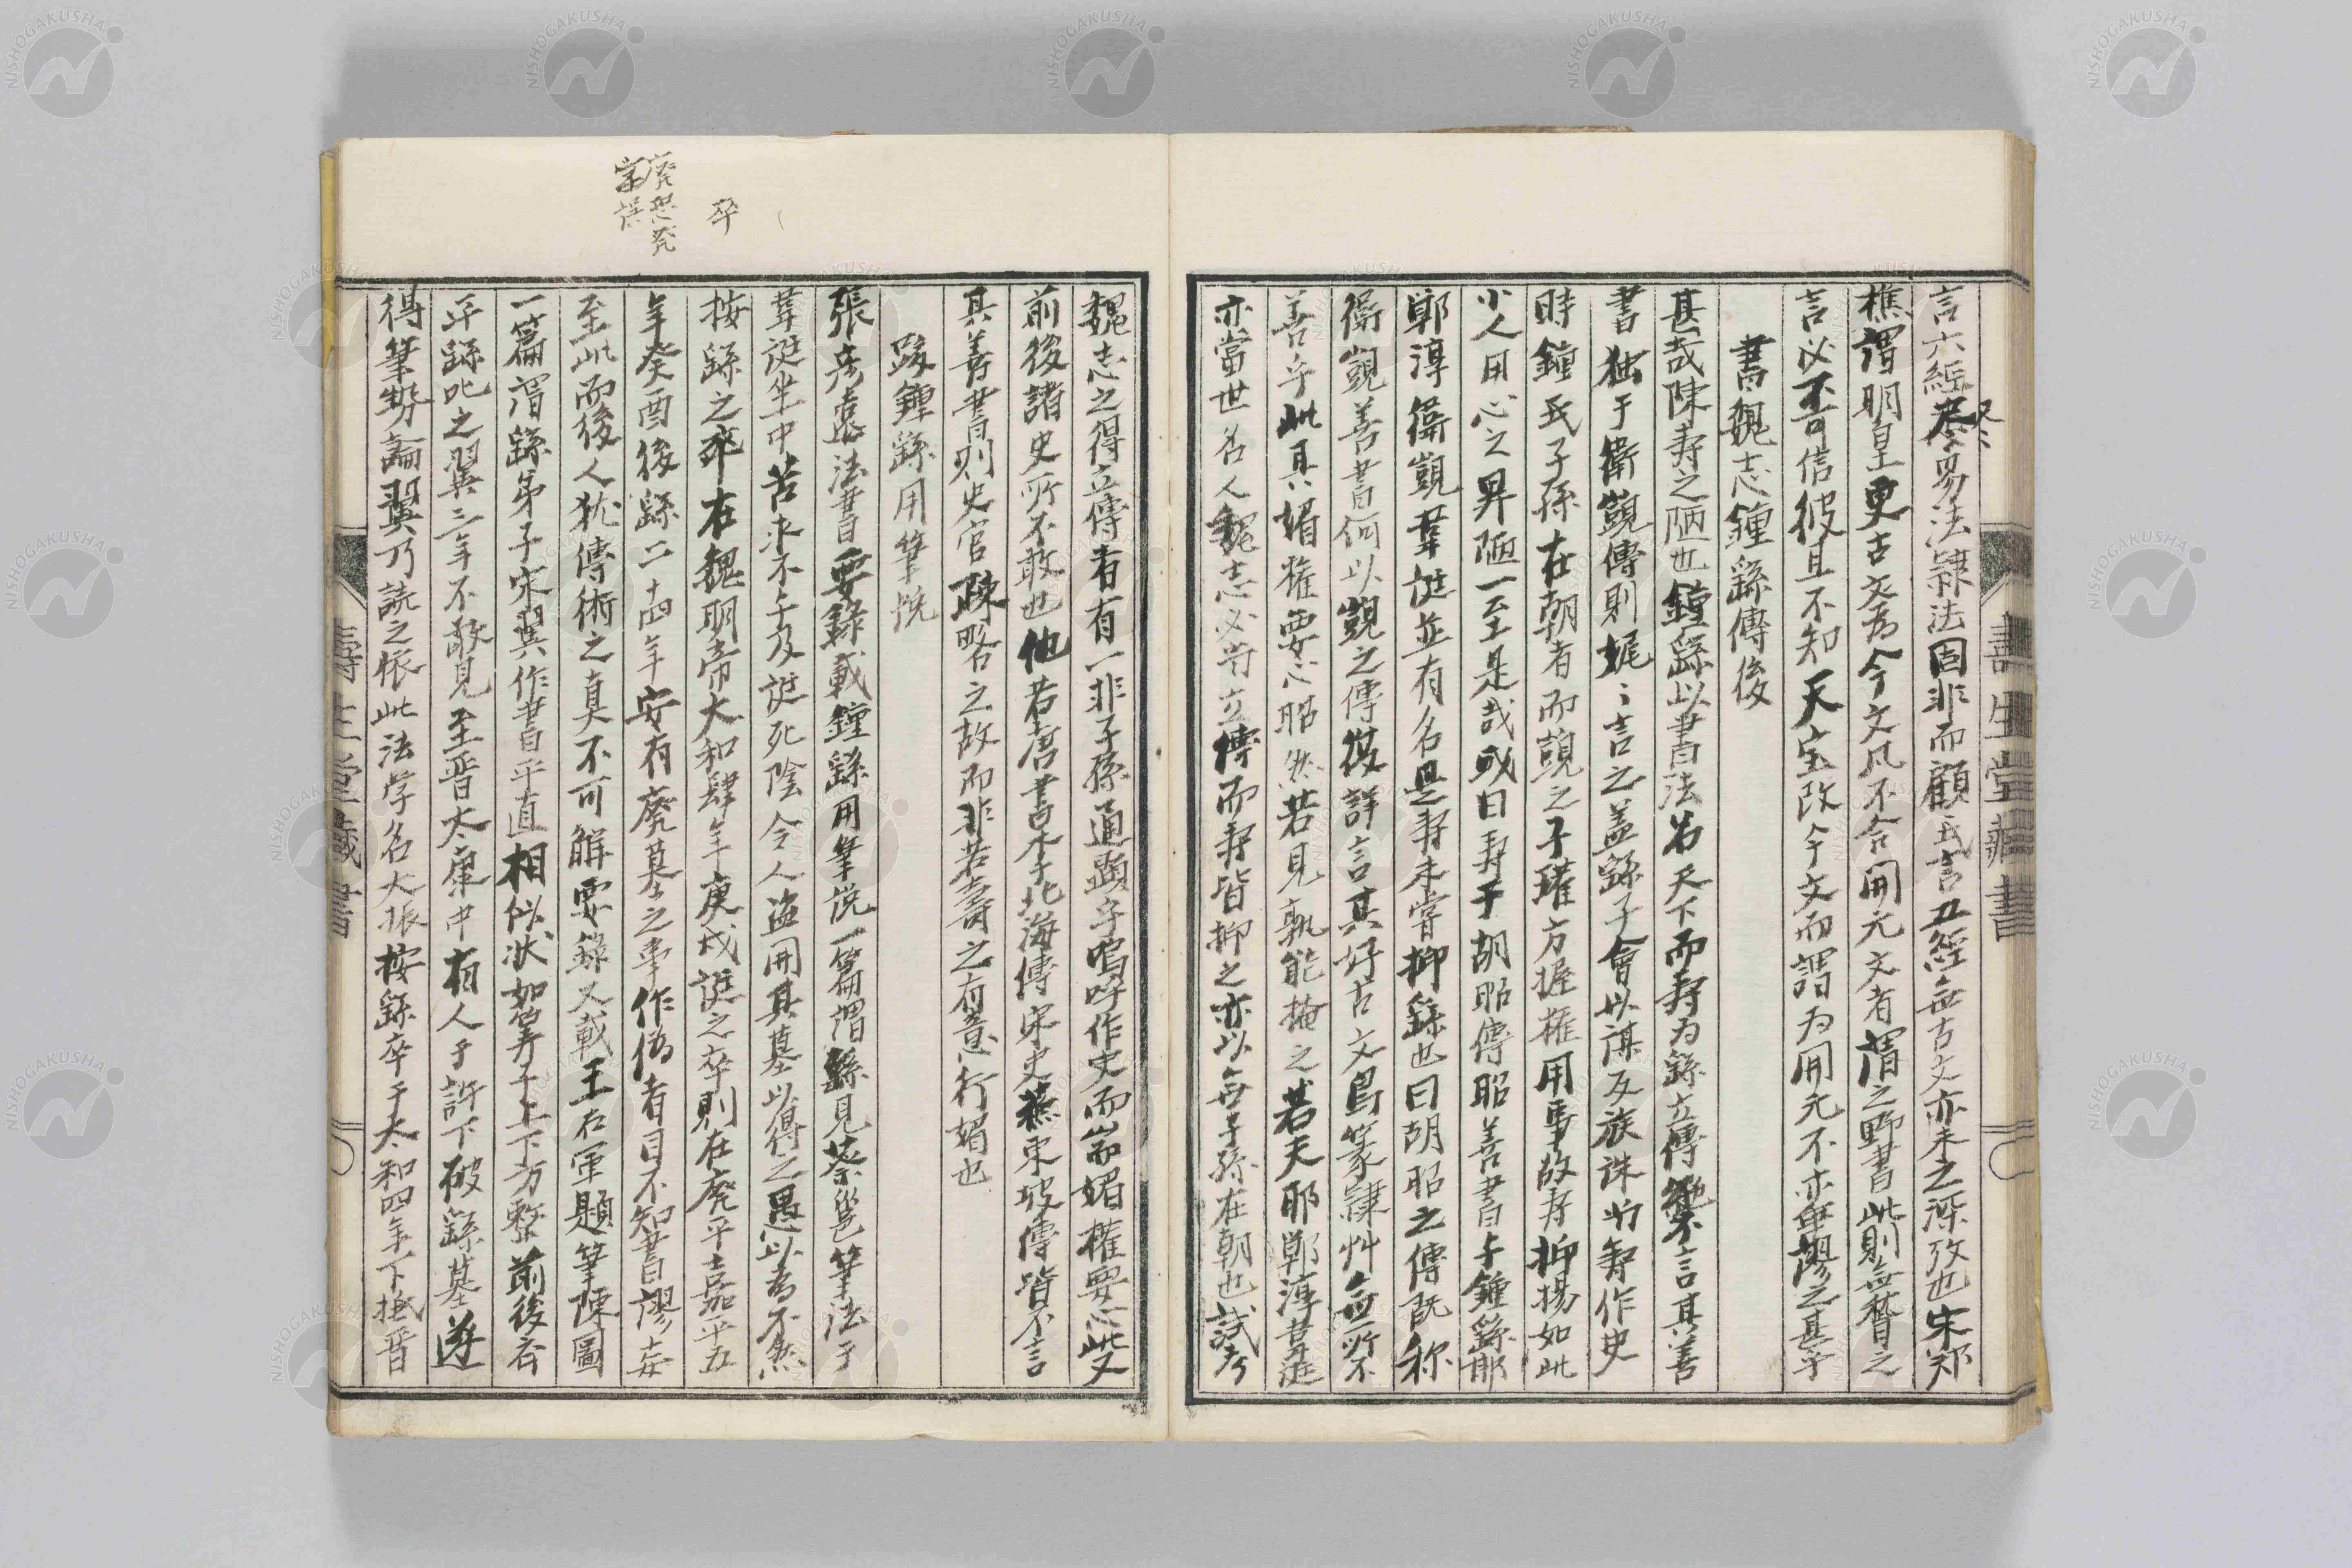 言六經叅易法隷法固非而顧氏言五經無古文亦未之深攷也宋郑
樵謂明皇更古文為今文凡不合開元文者謂之野書此則無稽之
言必不可信彼且不知天宝改今文而謂为開元不亦謬之甚乎
書魏志鍾繇傳後
甚哉陳寿之陋也鍾繇以書法名天下而寿为繇立傳絶不言其善
書独于衛覬傳則娓〻言之盖繇子會以謀反族诛当寿作史
時鍾氏子孫在朝者而覬之子瓘方握權用事故寿抑揚如此
小人用心之卑陋一至是哉或曰寿于胡昭傳昭善書与鍾繇邯
鄲淳衛覬韋誕並有名是寿未嘗抑繇也曰胡昭之傳既称
衛覬善書何以覬之傳復詳言其好古文鳥篆隷艸無所不
善乎此其媚權要心昭然若見孰能掩之若夫邯鄲淳韋誕
亦當世名人魏志必当立傳而寿皆抑之亦以無子孫在朝也試考
魏志之得立傳者有一非子孫通顯乎嗚呼作史而耑媚權要心此又
前後諸史所不敢也他若唐書李北海傳宋史蘇東坡傳皆不言
其善書則史官疎略之故而非若壽之有意行媚也
跋鍾繇用筆悦
張彦遠法書要錄載鍾繇用筆悦一篇謂繇見蔡邕筆法于
韋誕坐中苦求不与及誕死陰令人盗開其墓以得之愚以為不然
按繇之卒在魏明帝大和肆年庚戌誕之卒則在廃平嘉平五
年癸酉後繇二十四年安有廃墓之事作偽者目不知書謬妄
至此而後人犹傳術之真不可解要錄又載王右軍題筆陳圖
一篇謂繇弟子宋翼作書平直相似状如筭子上下方整前後齐
平繇叱之翼三年不敢見至晋太康中有人于許下破繇墓遂
得筆勢論翼乃読之依此法学名大振按繇卒于太和四年下抵晋
卒
廃恐発
字誤
壽生堂藏書
壽生堂藏書